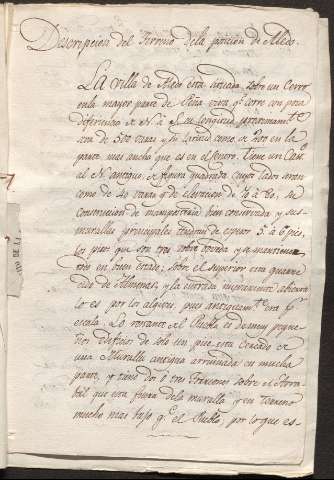 Descripcion del Terreno de la posicion de Aledo.
La Villa de Aledo está situada sobre un Cerro
en la mayor parte de Peña viva qe. corre con poca
diferencia de N. à S. su longitud proximamte.
sera de 500 varas y su latitud como de 200 en la
parte mas ancha que es el centro. Tiene un Cast.
al N. antiguo de figura quadrada cuyos lados seran
como de 40 varas y de elevacion de 70 a 80. su
construccion de mamposteria bien concluida y sus
murallas principales tendran de espesor 5 à 6 pies.
los pisos que son tres sobre boveda y se mantienen
en buen estado; sobre el superior está guarne
cido de Almenas, y la entrada unicamente ahora
lo es por los algives, pues antiguamte. era pr.
escala. Lo restante del Pueblo es de muy peque
ños edificios de solo un piso está cercado de
una Muralla antigua arruinada en mucha
parte, y tiene dos ó tres Torreones sobre el
que esta fuera de la muralla y en terreno
mucho mas bajo qe. el Pueblo, por lo que es-